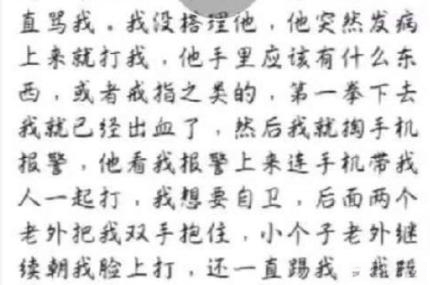 直骂我。我没搭理他，他突然发病
上来就打我，他手里应该有什么东
西，或者戒指之类的，第一拳下去
我就已经出血了，然后我就掏手机
报警，他看我报警上来连手机带我
人一起打，我想要自卫，后面两个
老外把我双手抱住，小个子老外继
续朝我脸上打，还一直踢我。我